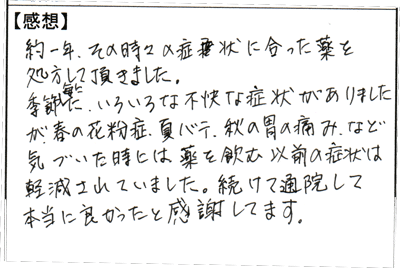 【感想】
約一年、その時々の症状に合った薬を
処方して頂きました。
季節毎に、いろいろな不快な症状がありました
が、春の花粉症、夏バテ、秋の胃の痛み、など
気づいた時には薬を飲む以前の症状は
軽減されていました。続けて通院して
本当に良かったと感謝してます。